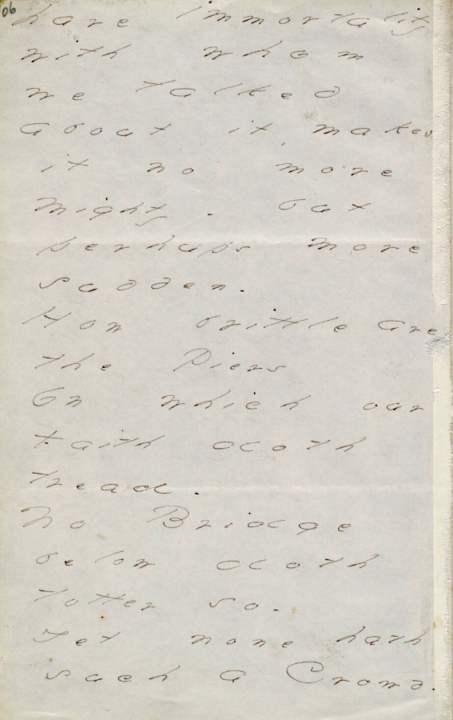 06
have immortality
with whom
we talked
about it, makes
it no more
mighty - but
perhaps more
sudden.
How brittle are
the Piers
On which our
Faith doth
tread -
No Bridge
below doth
totter so -
Yet none hath
such a Crowd.